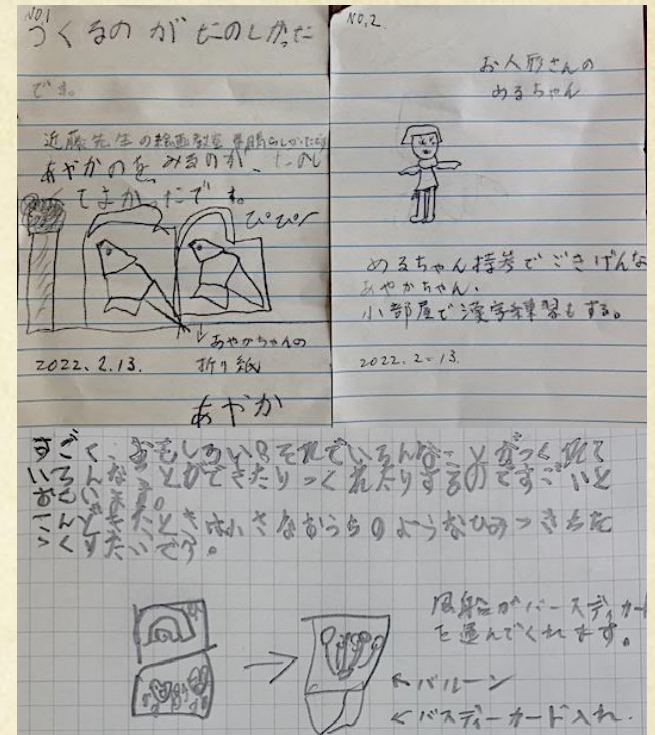 NO.1
つくるのが たのしかった
です。
近藤先生の絵画教室 素晴らしかったです
あやかのを みるのが、たのし
くてよかったです。
ぴぴー
↓あやかちゃんの
折り紙
2022.2.13.
あやか
NO.2.
お人形さんの
めるちゃん
めるちゃん持参でごきげんな
あやかちゃん。
小部屋で漢字練習もする。
2022.2.13.
すごく、おもしろい。それでいろんなことがつくれて
いろんなことができたりつくれたりするのですごいと
おもいます。
こんどきたときは小さなおうちのようなひみつきちを
つくりたいです。
風船がバースディカード
を運んでくれます。
←バルーン
←バスディーカード入れ.